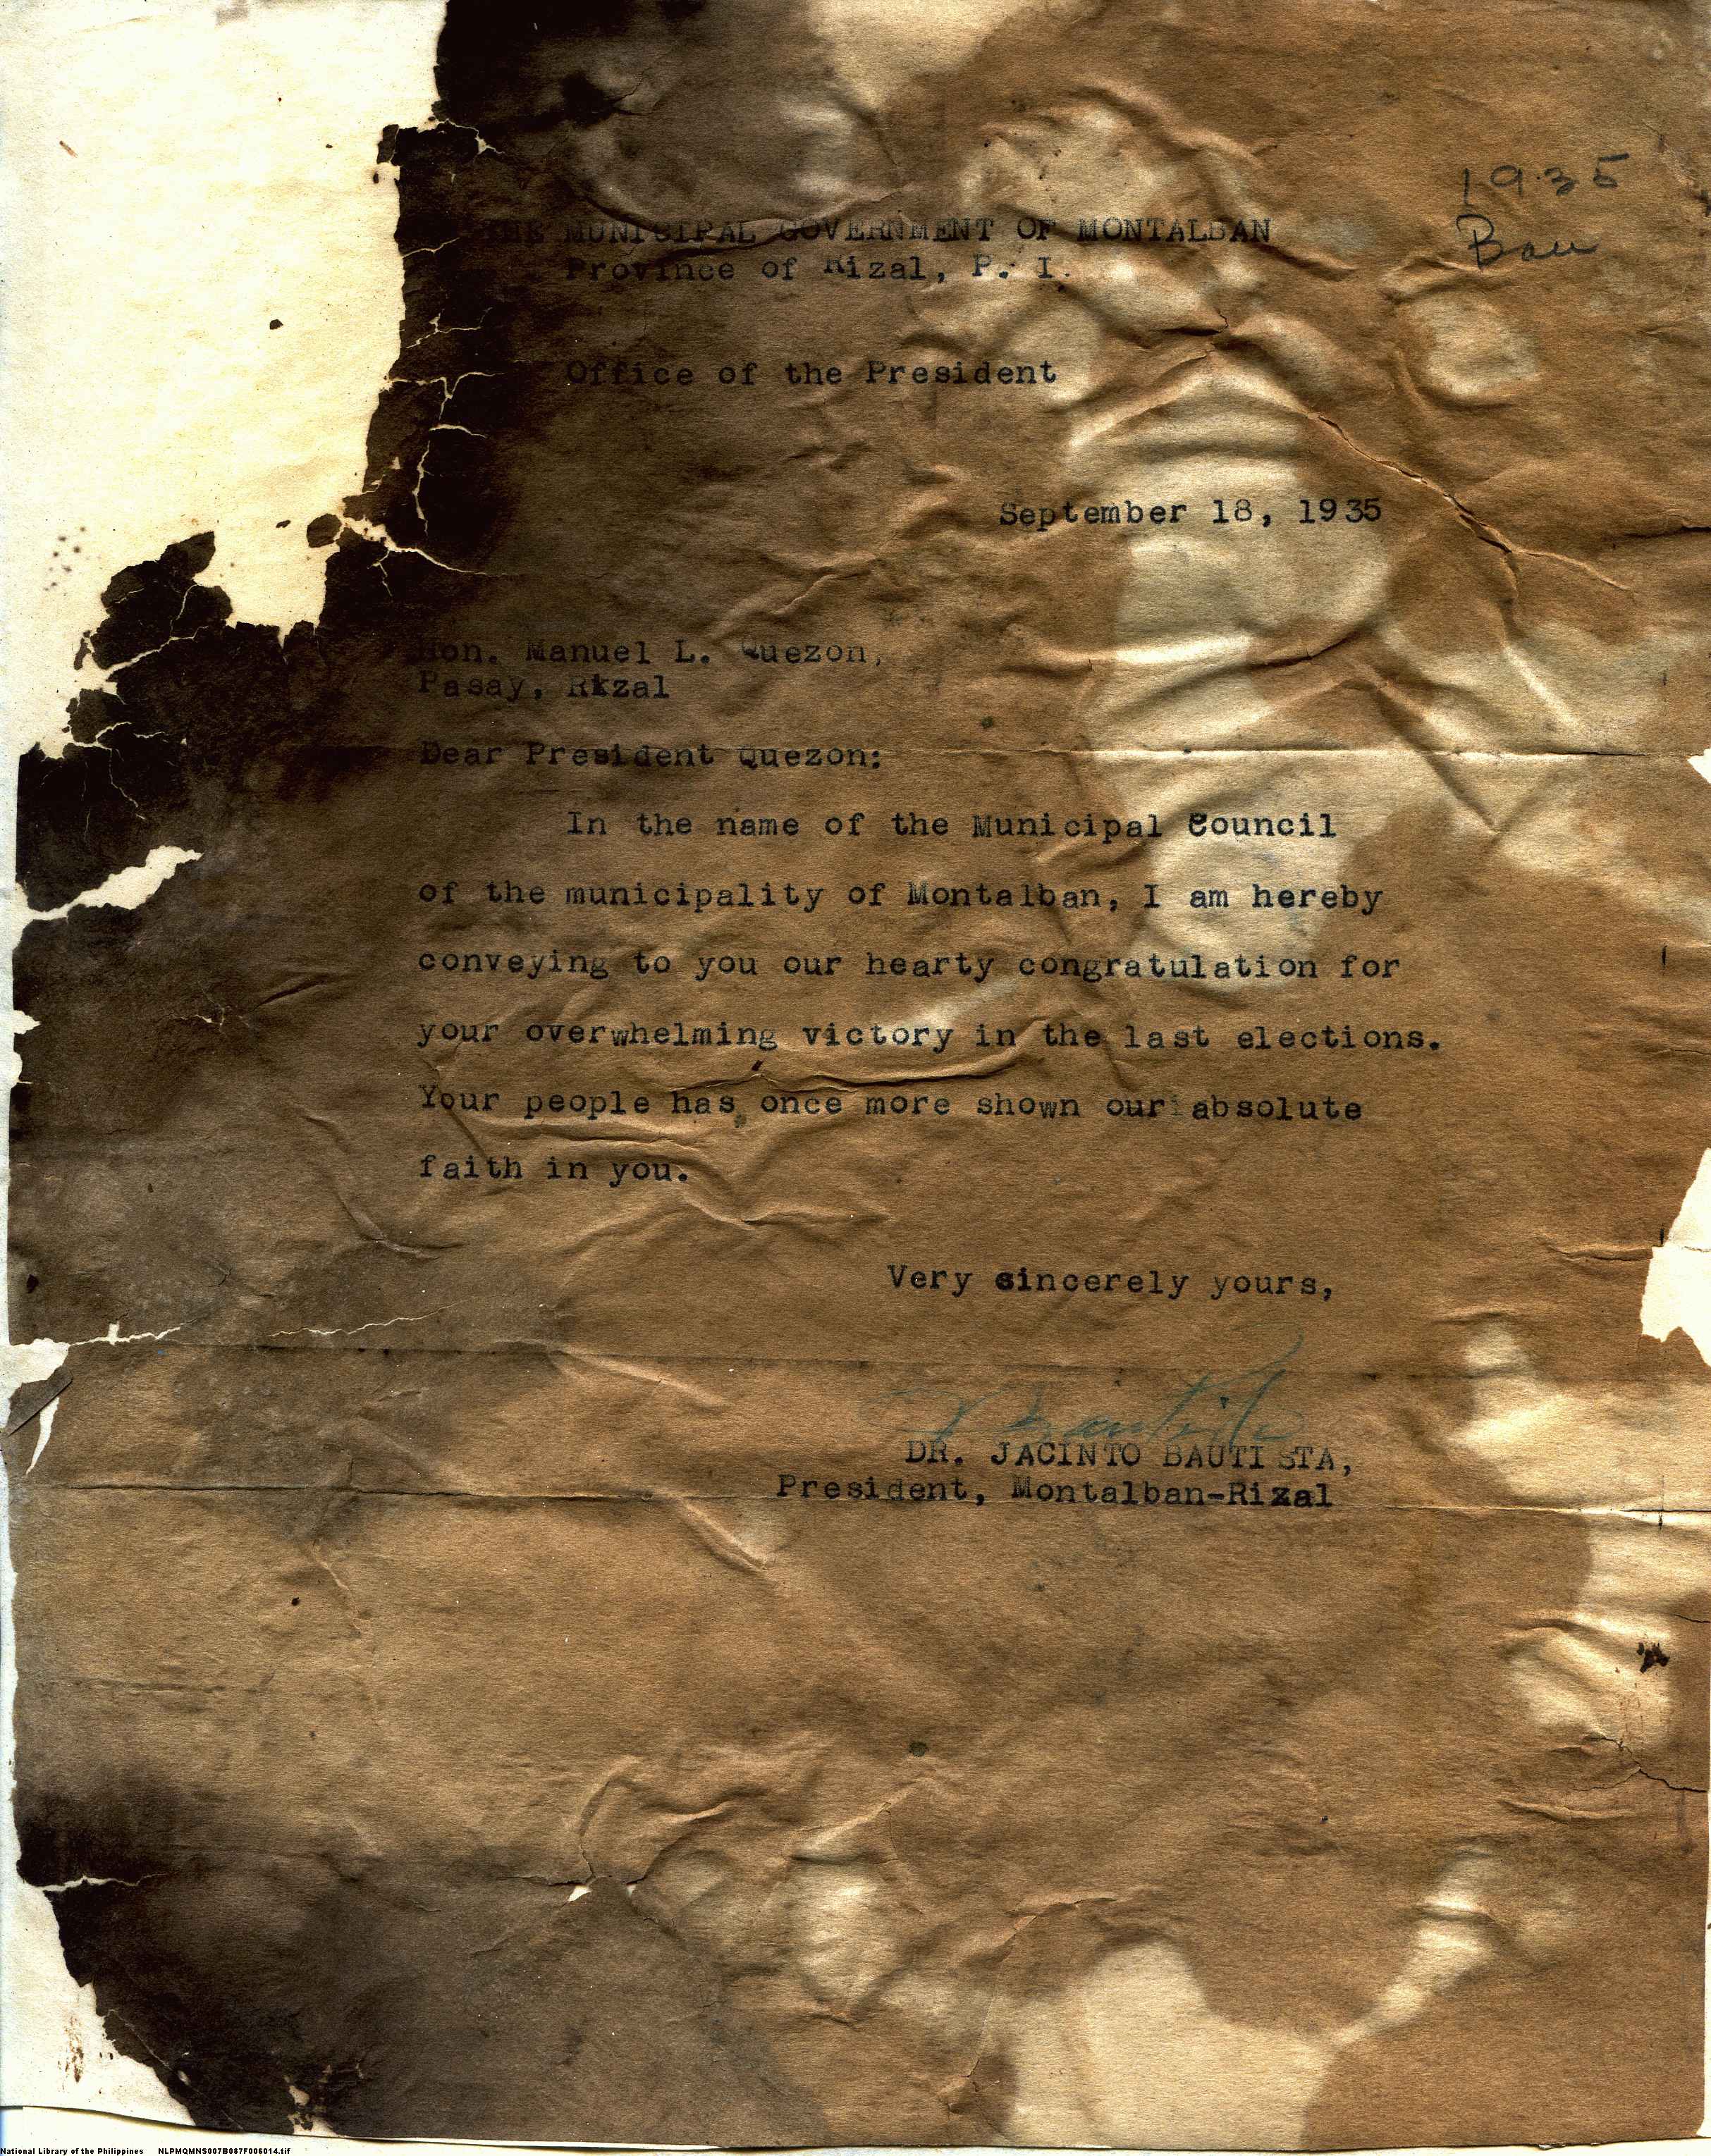 1935
Bau
THE MUNICIPAL GOVERNMENT OF MONTALBAN
Province of Rizal, P. I.
Office of the President
September 18, 1935
Hon. Manuel L. Quezon,
Pasay, Rizal
Dear President Quezon:
In the name of the Municipal Council
of the municipality of Montalban, I am hereby
conveying to you our hearty congratulation for
your overwhelming victory in the last elections.
Your people has once more shown our absolute
faith in you.
Very sincerely yours,
DR. JACINTO BAUTISTA,
President, Montalban-Rizal
National Library of the Philippines NLPMQMNS007B087F006014.tif